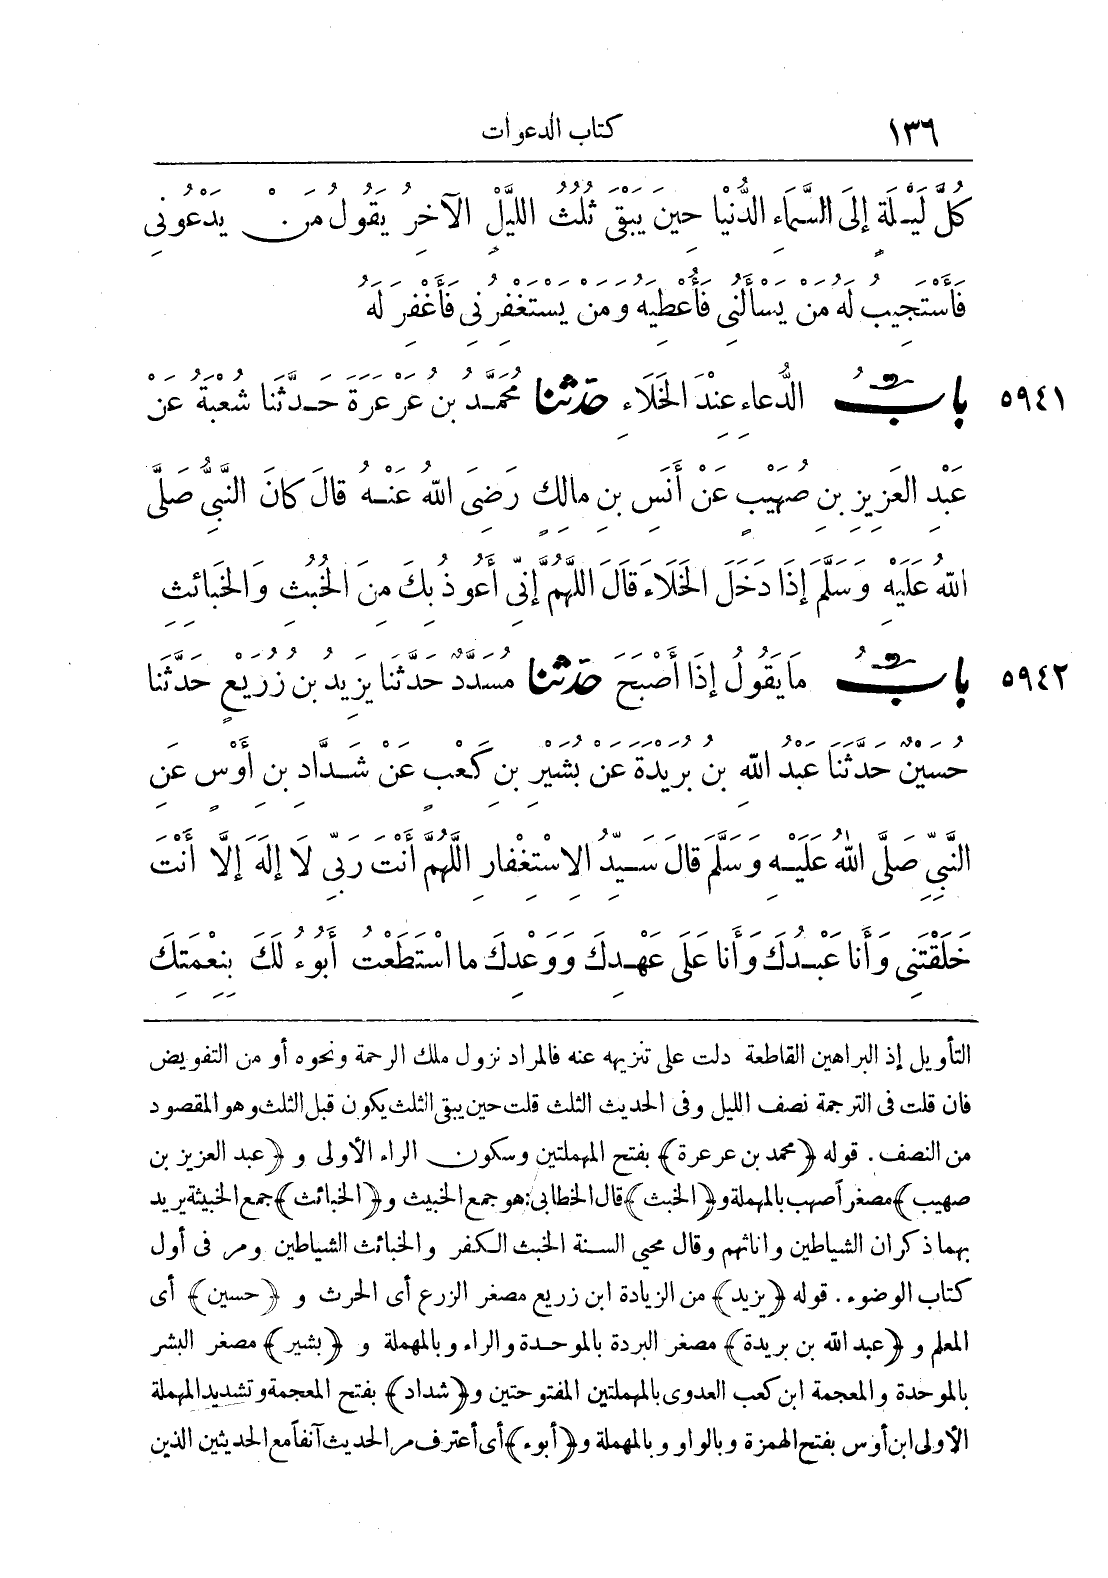 ١٣٦ كتاب الدعوات
كُلَّ لَيْلَةٍ إِلَى السَّمَاءِ الدُّنْيَا حِينَ يَبْقَى ثُلُثُ اللَّيْلِ الْآخِرُ يَقُولُ مَنْ يَدْعُونِي
فَأَسْتَجِيبَ لَهُ مَنْ يَسْأَلُنِي فَأُعْطِيَهُ وَمَنْ يَسْتَغْفِرُنِي فَأَغْفِرَ لَهُ
٥٩٤١ بابُ الدُّعَاءِ عِنْدَ الْخَلَاءِ حدثنا مُحَمَّدُ بْنُ عَرْعَرَةَ حَدَّثَنَا شُعْبَةُ عَنْ
عَبْدِ الْعَزِيزِ بْنِ صُهَيْبٍ عَنْ أَنَسِ بْنِ مَالِكٍ رَضِيَ اللهُ عَنْهُ قَالَ كَانَ النَّبِيُّ صَلَّى
اللهُ عَلَيْهِ وَسَلَّمَ إِذَا دَخَلَ الْخَلَاءَ قَالَ اللَّهُمَّ إِنِّي أَعُوذُ بِكَ مِنَ الْخُبُثِ وَالْخَبَائِثِ
٥٩٤٢ بابُ مَا يَقُولُ إِذَا أَصْبَحَ حدثنا مُسَدَّدٌ حَدَّثَنَا يَزِيدُ بْنُ زُرَيْعٍ حَدَّثَنَا
حُسَيْنٌ حَدَّثَنَا عَبْدُ اللهِ بْنُ بُرَيْدَةَ عَنْ بُشَيْرِ بْنِ كَعْبٍ عَنْ شَدَّادِ بْنِ أَوْسٍ عَنِ
النَّبِيِّ صَلَّى اللهُ عَلَيْهِ وَسَلَّمَ قَالَ سَيِّدُ الِاسْتِغْفَارِ اللَّهُمَّ أَنْتَ رَبِّي لَا إِلَهَ إِلَّا أَنْتَ
خَلَقْتَنِي وَأَنَا عَبْدُكَ وَأَنَا عَلَى عَهْدِكَ وَوَعْدِكَ مَا اسْتَطَعْتُ أَبُوءُ لَكَ بِنِعْمَتِكَ
التأويل إذ البراهين القاطعة دلت على تنزيهه عنه فالمراد نزول ملك الرحمة ونحوه أو من التفويض
فان قلت فى الترجمة نصف الليل وفى الحديث الثلث قلت حين يبقى الثلث يكون قبل الثلث وهو المقصود
من النصف . قوله ﴿محمد بن عرعرة﴾ بفتح المهملتين وسكون الراء الأولى و ﴿عبد العزيز بن
صهيب﴾ مصغر أصهب بالمهملة و﴿الخبث﴾ قال الخطابى: هو جمع الخبيث و﴿الخبائث﴾ جمع الخبيثة يريد
بهما ذكران الشياطين واناثهم وقال محيى السنة الخبث الكفر والخبائث الشياطين ومر فى أول
كتاب الوضوء . قوله ﴿يزيد﴾ من الزيادة ابن زريع مصغر الزرع أى الحرث و ﴿حسين﴾ أى
المعلم و ﴿عبد الله بن بريدة﴾ مصغر البردة بالموحدة والراء وبالمهملة و ﴿بشير﴾ مصغر البشر
بالموحدة والمعجمة ابن كعب العدوى بالمهملتين المفتوحتين و﴿شداد﴾ بفتح المعجمة وتشديد المهملة
الأولى ابن أوس بفتح الهمزة وبالواو وبالمهملة و﴿أبوء﴾ أى أعترف مر الحديث آنفاً مع الحديثين الذين